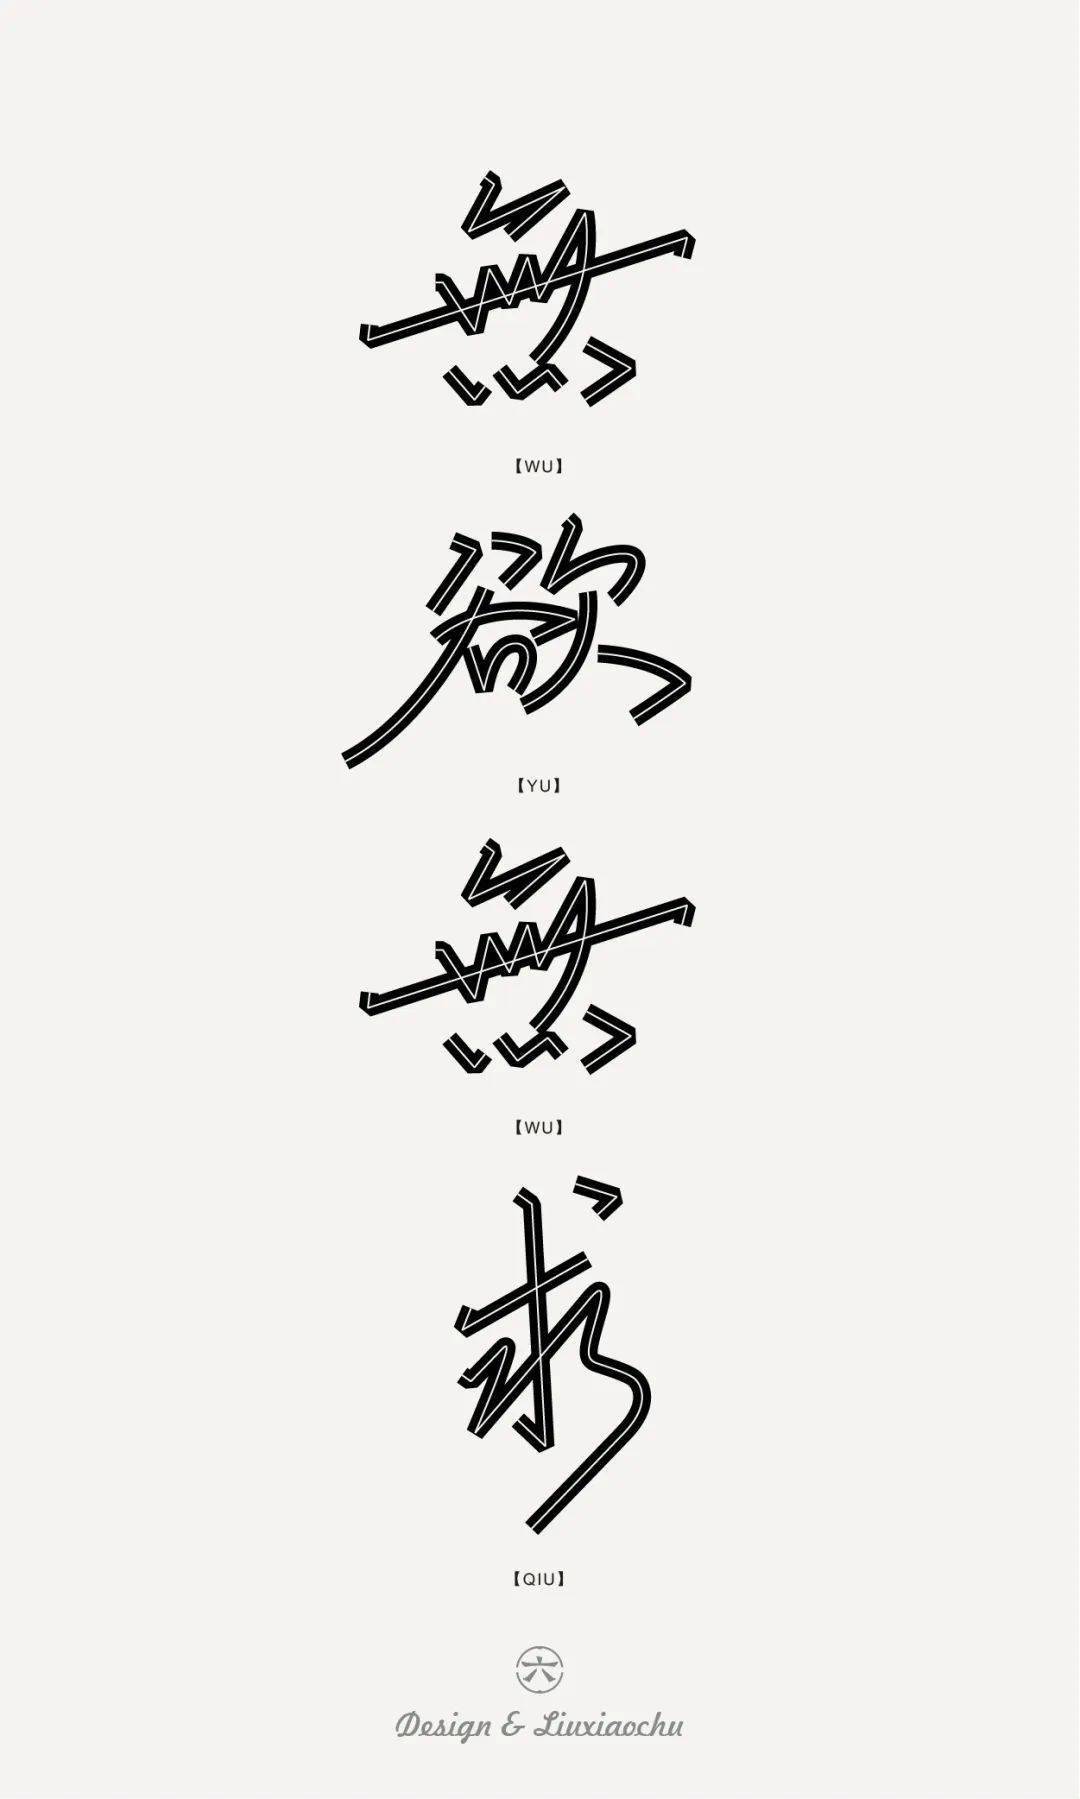 無
【WU】
欲
【YU】
無
【WU】
求
【QIU】
六
Design & Liuxiaochu